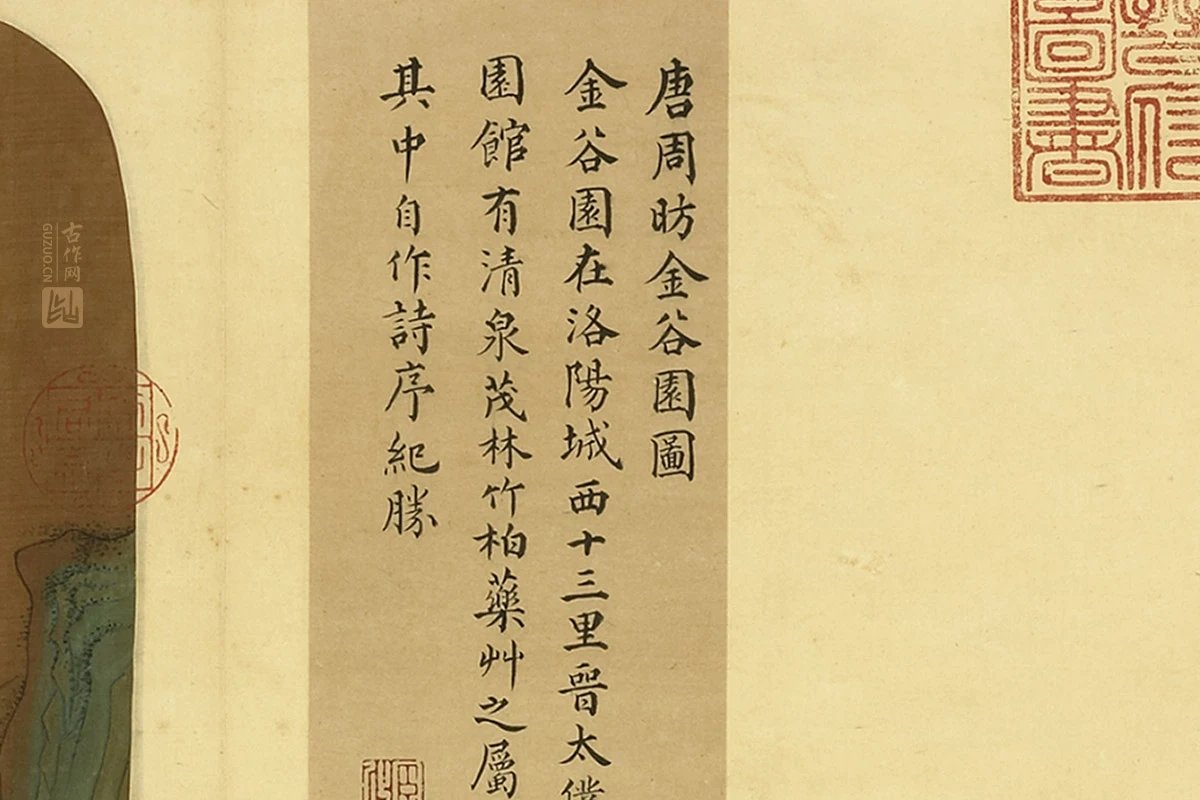 唐周昉金谷園圖
金谷園在洛陽城西十三里晉太僕
園館有清泉茂林竹柏藥艸之屬
其中自作詩序紀勝
古作网
GUZUO.CN